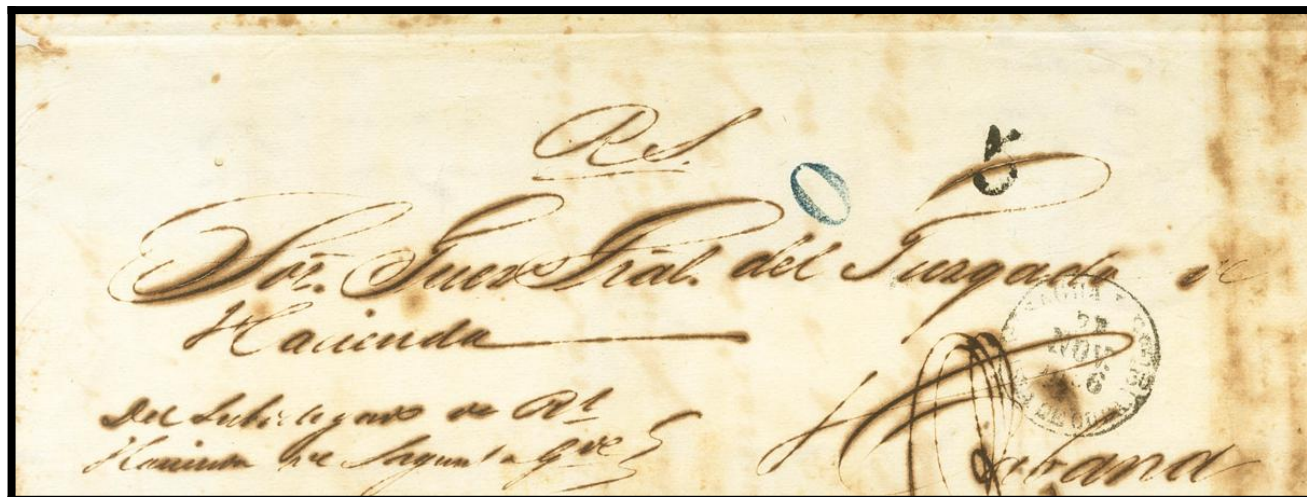 R S.
0 5
Sor. Juez Gral. del Juzgado de
Hacienda
Del Subdelegado de Rl
Hacienda de Sagua la Gde
Habana